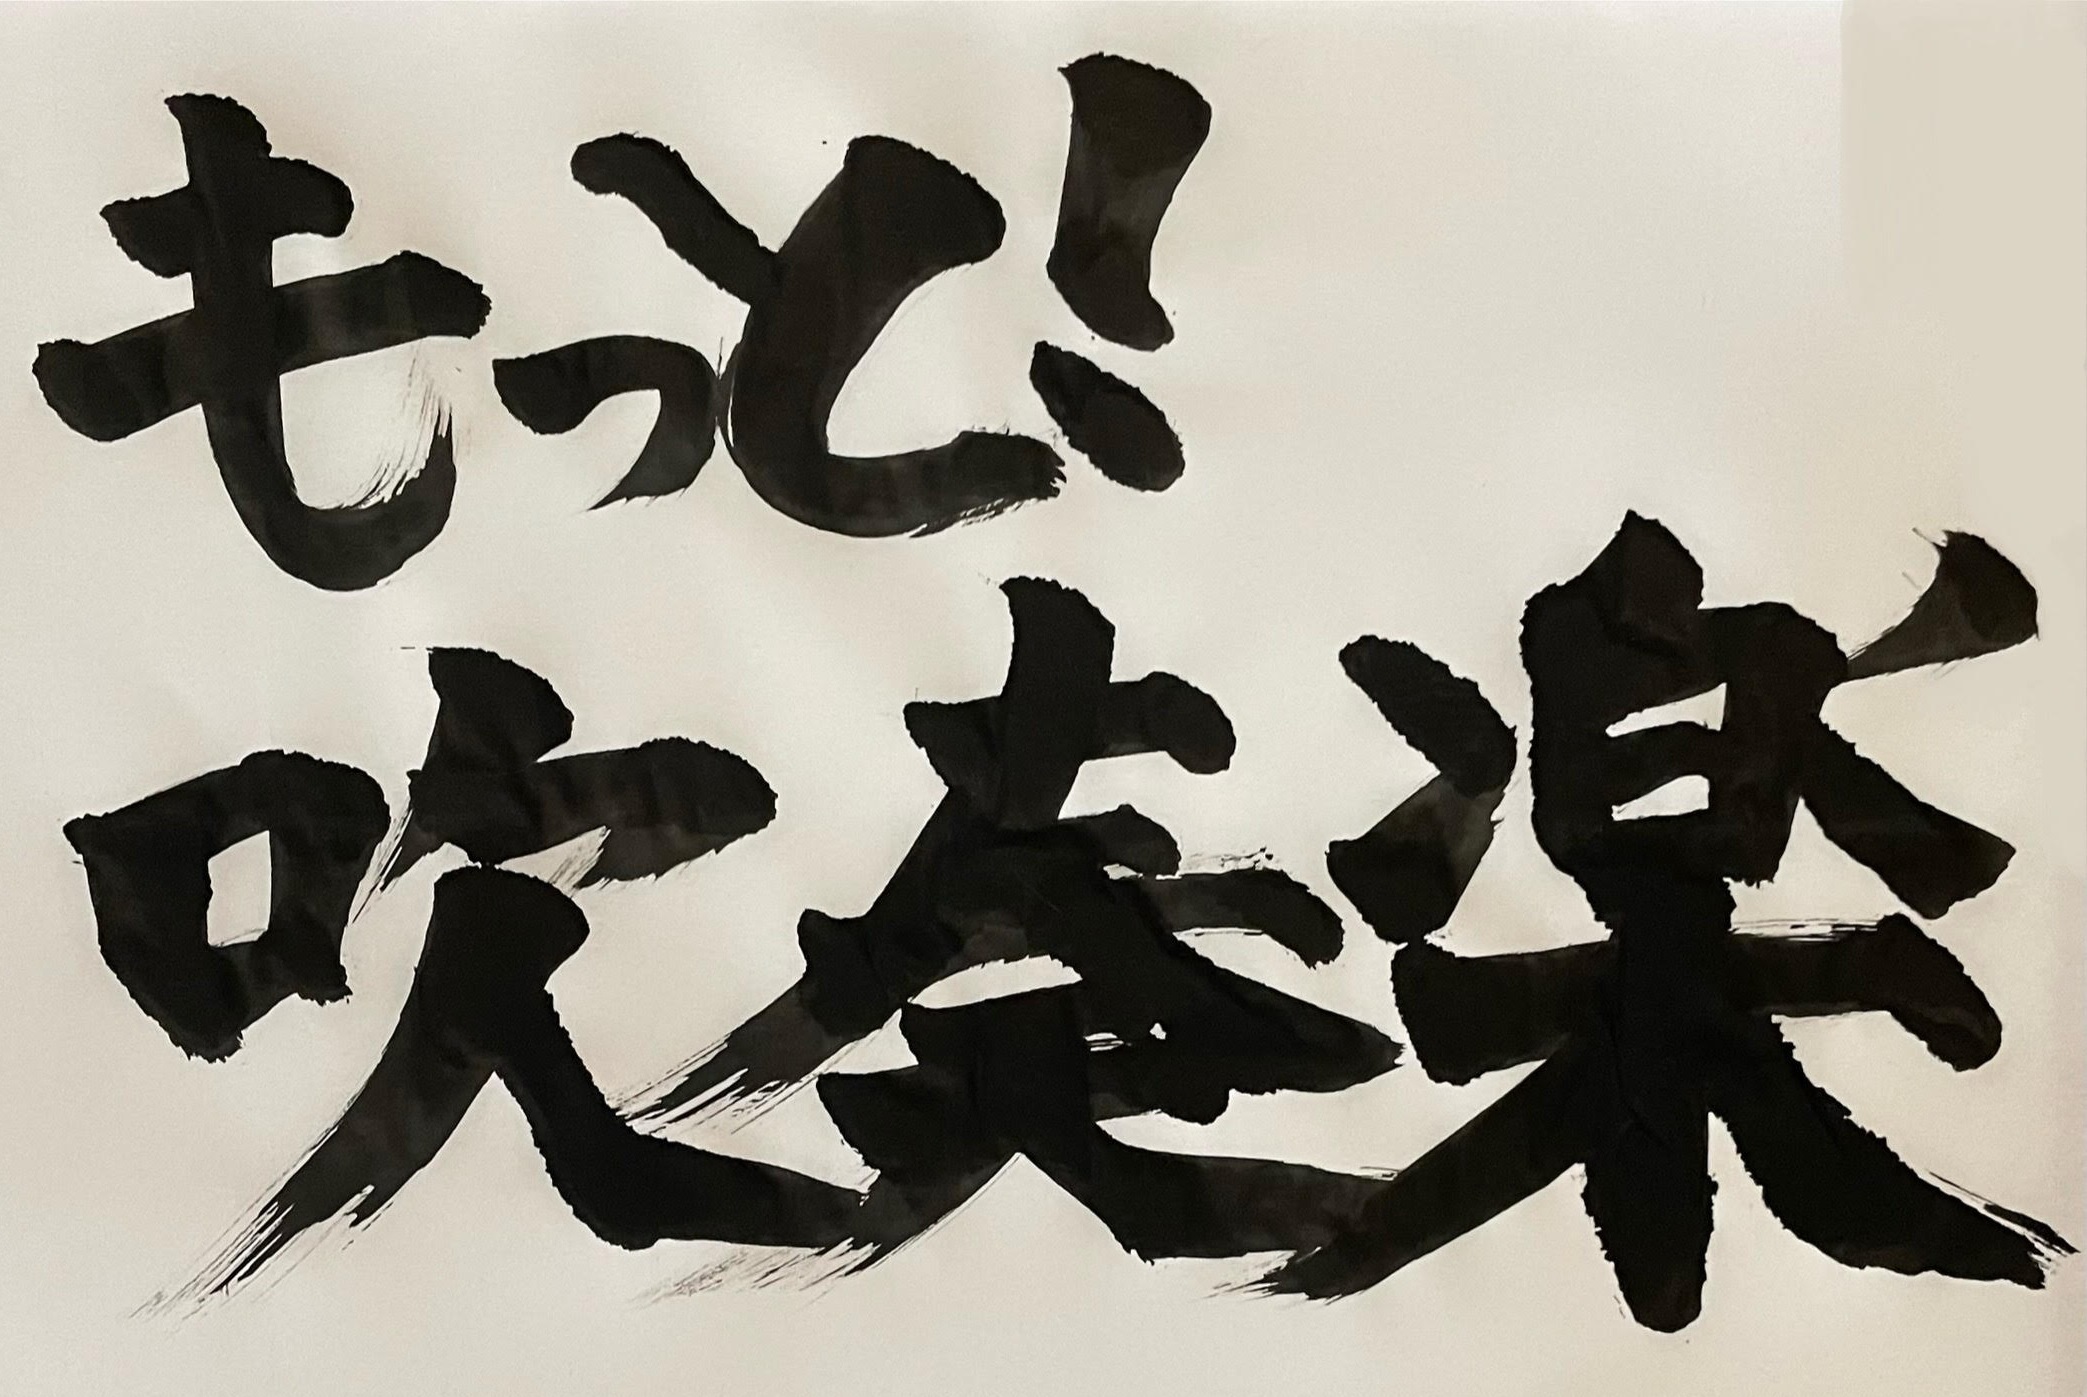 もっと!
吹奏楽